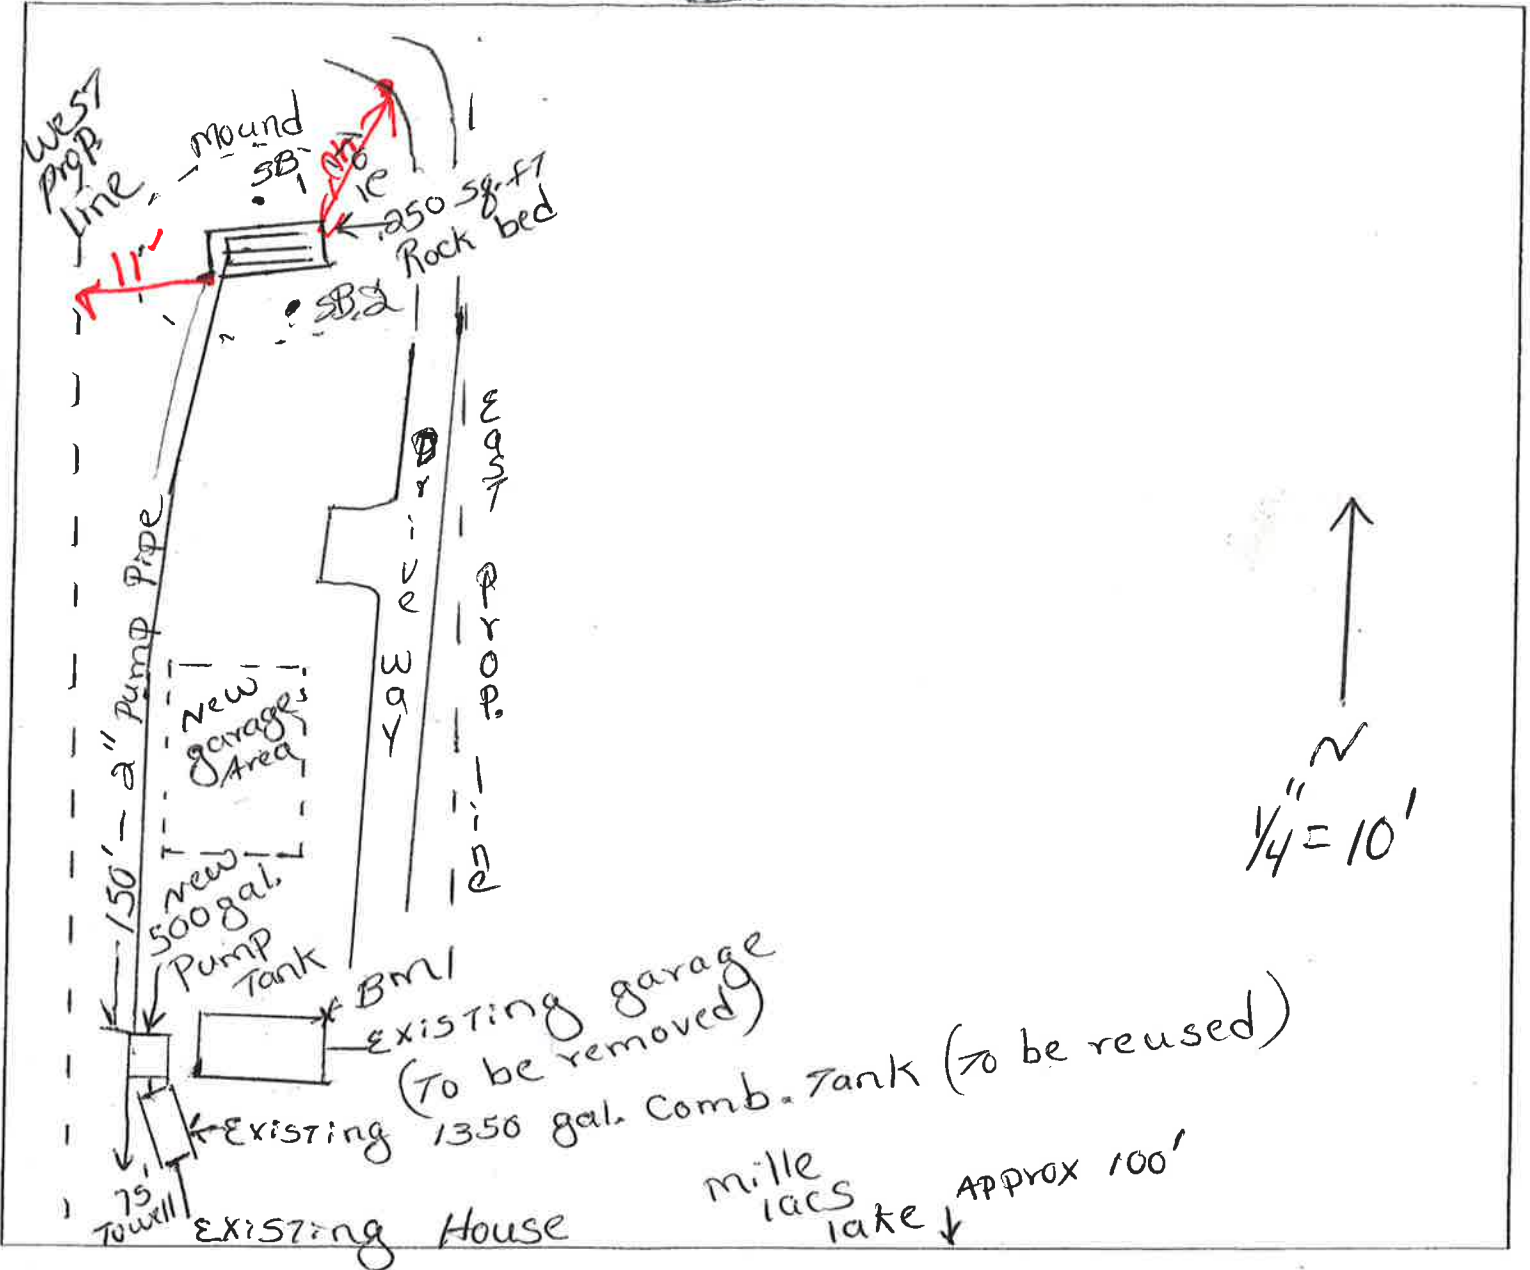 West
Prop.
Line
mound
SB
1
250 sq. ft
Rock bed
11'
SB.2
Drive way
East Prop. line
150' - 2" Pump Pipe
New
garage
Area
New
500 gal.
Pump
Tank
BM1
Existing garage
(To be removed)
Existing 1350 gal. Comb. Tank (To be reused)
75'
To well
Existing House
mille
lacs
lake
Approx 100'
N
1/4" = 10'